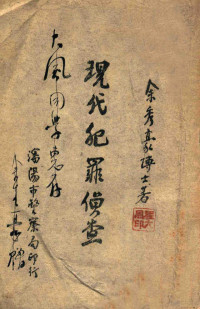 余秀豪博士著
現代犯罪偵查
大風同學惠存
瀋陽市警察局印行